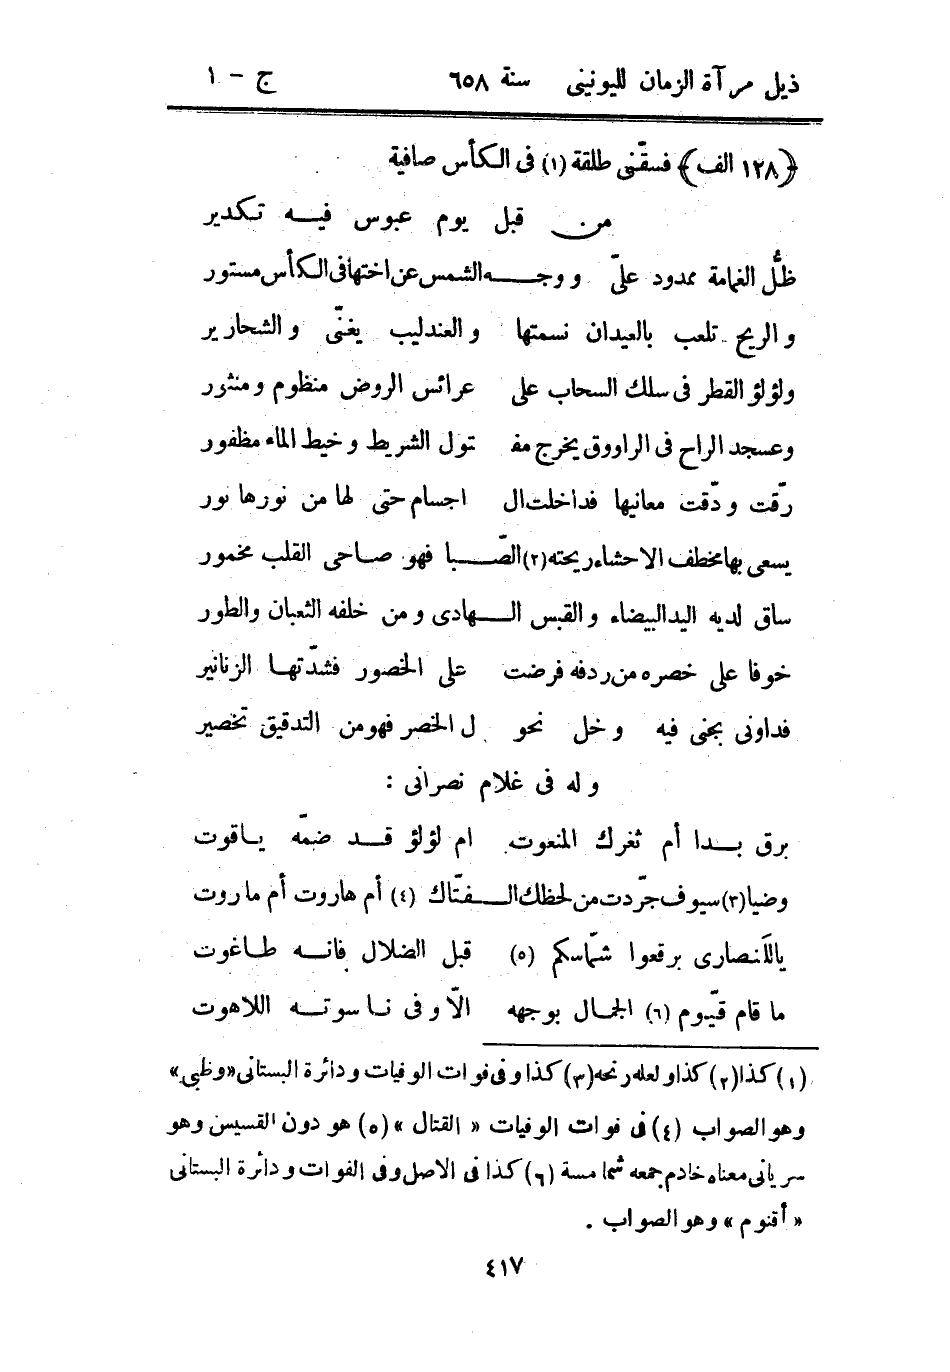 ذيل مرآة الزمان لليونينى سنة ٦٥٨ ج - ١
﴿١٢٨ الف﴾ فسقّنى طلقة (١) فى الكأس صافية
من قبل يوم عبوس فيه تكدير
ظلُّ الغمامة ممدود علىّ ووجه الشمس عن اختها فى الكأس مستور
والريح تلعب بالعيدان نسمتها والعندليب يغنّى والشحارير
ولؤلؤ القطر فى سلك السحاب على عرائس الروض منظوم ومنثور
وعسجد الراح فى الراووق يخرج مفـ تول الشريط وخيط الماء مظفور
رقّت ودقّت معانيها فداخلت ال اجسام حتى لها من نورها نور
يسعى بها مخطف الاحشاء ريحته (٢) الصّبا فهو صاحى القلب مخمور
ساق لديه اليد البيضاء والقبس الهادى ومن خلفه الثعبان والطور
خوفا على خصره من ردفه فرضت على الخصور فشدّتها الزنانير
فداونى بجنى فيه وخل نحو ل الخصر فهو من التدقيق تخصير
وله فى غلام نصرانى :
برق بدا أم ثغرك المنعوت ام لؤلؤ قد ضمّه ياقوت
وضيا (٣) سيوف جرّدت من لحظك الفتّاك (٤) أم هاروت أم ماروت
ياللَنصارى برقعوا شمّاسكم (٥) قبل الضلال فانه طاغوت
ما قام قيّوم (٦) الجمال بوجهه الّا وفى ناسوته اللاهوت
(١) كذا (٢) كذا ولعله رنحه (٣) كذا وفى فوات الوفيات ودائرة البستانى «وظبى»
وهو الصواب (٤) فى فوات الوفيات « القتال » (٥) هو دون القسيس وهو
سريانى معناه خادم جمعه شمامسة (٦) كذا فى الاصل وفى الفوات ودائرة البستانى
« أقنوم » وهو الصواب .
٤١٧